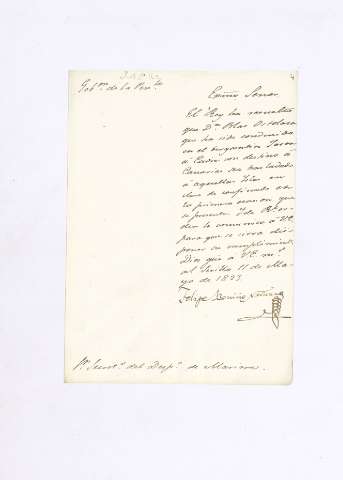 Gob.on de la Pen.la
Exmo. Señor
El Rey ha resuelto
que D.n Blas Ostolaza
que ha sido conducido
en el bergantin
a Cadiz con destino á
Canarias sea trasladado
á aquellas Islas en
clase de confinado en
la primera ocasion que
se presente. De Rl. or-
den lo comunico á V.E.
para que se sirva dis-
poner su cumplimiento.
Dios gue. á V.E. m.s
a.s Sevilla 11 de Ma-
yo de 1823.
Felipe
S.r Secret.o del Desp.o de Marina.